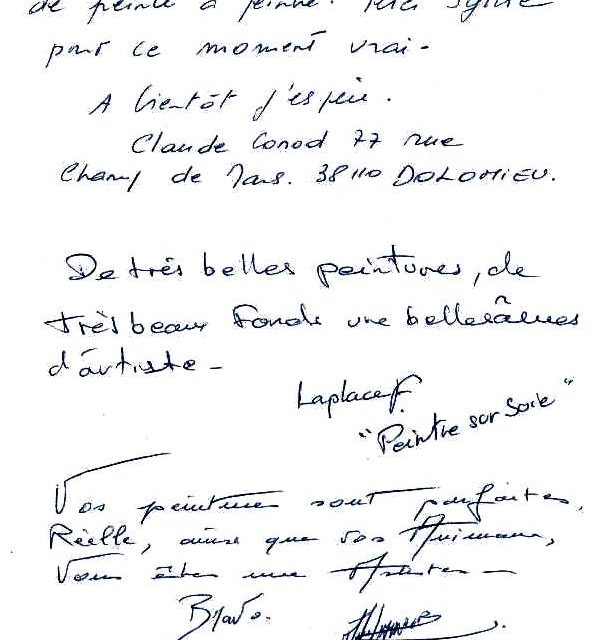 de peintre à peintre. Merci Sylvie
pour ce moment vrai.
A bientôt j'espère.
Claude Conod 77 rue
Champ de Mars. 38110 DOLOMIEU.
De très belles peintures, de
très beaux fonds une belle âmes
d'artiste -
Laplace F.
"Peintre sur Soie"
Vos peintures sont parfaites,
Réelle, ainsi que vos Animaux,
Vous êtes une Artiste -
Bravo.